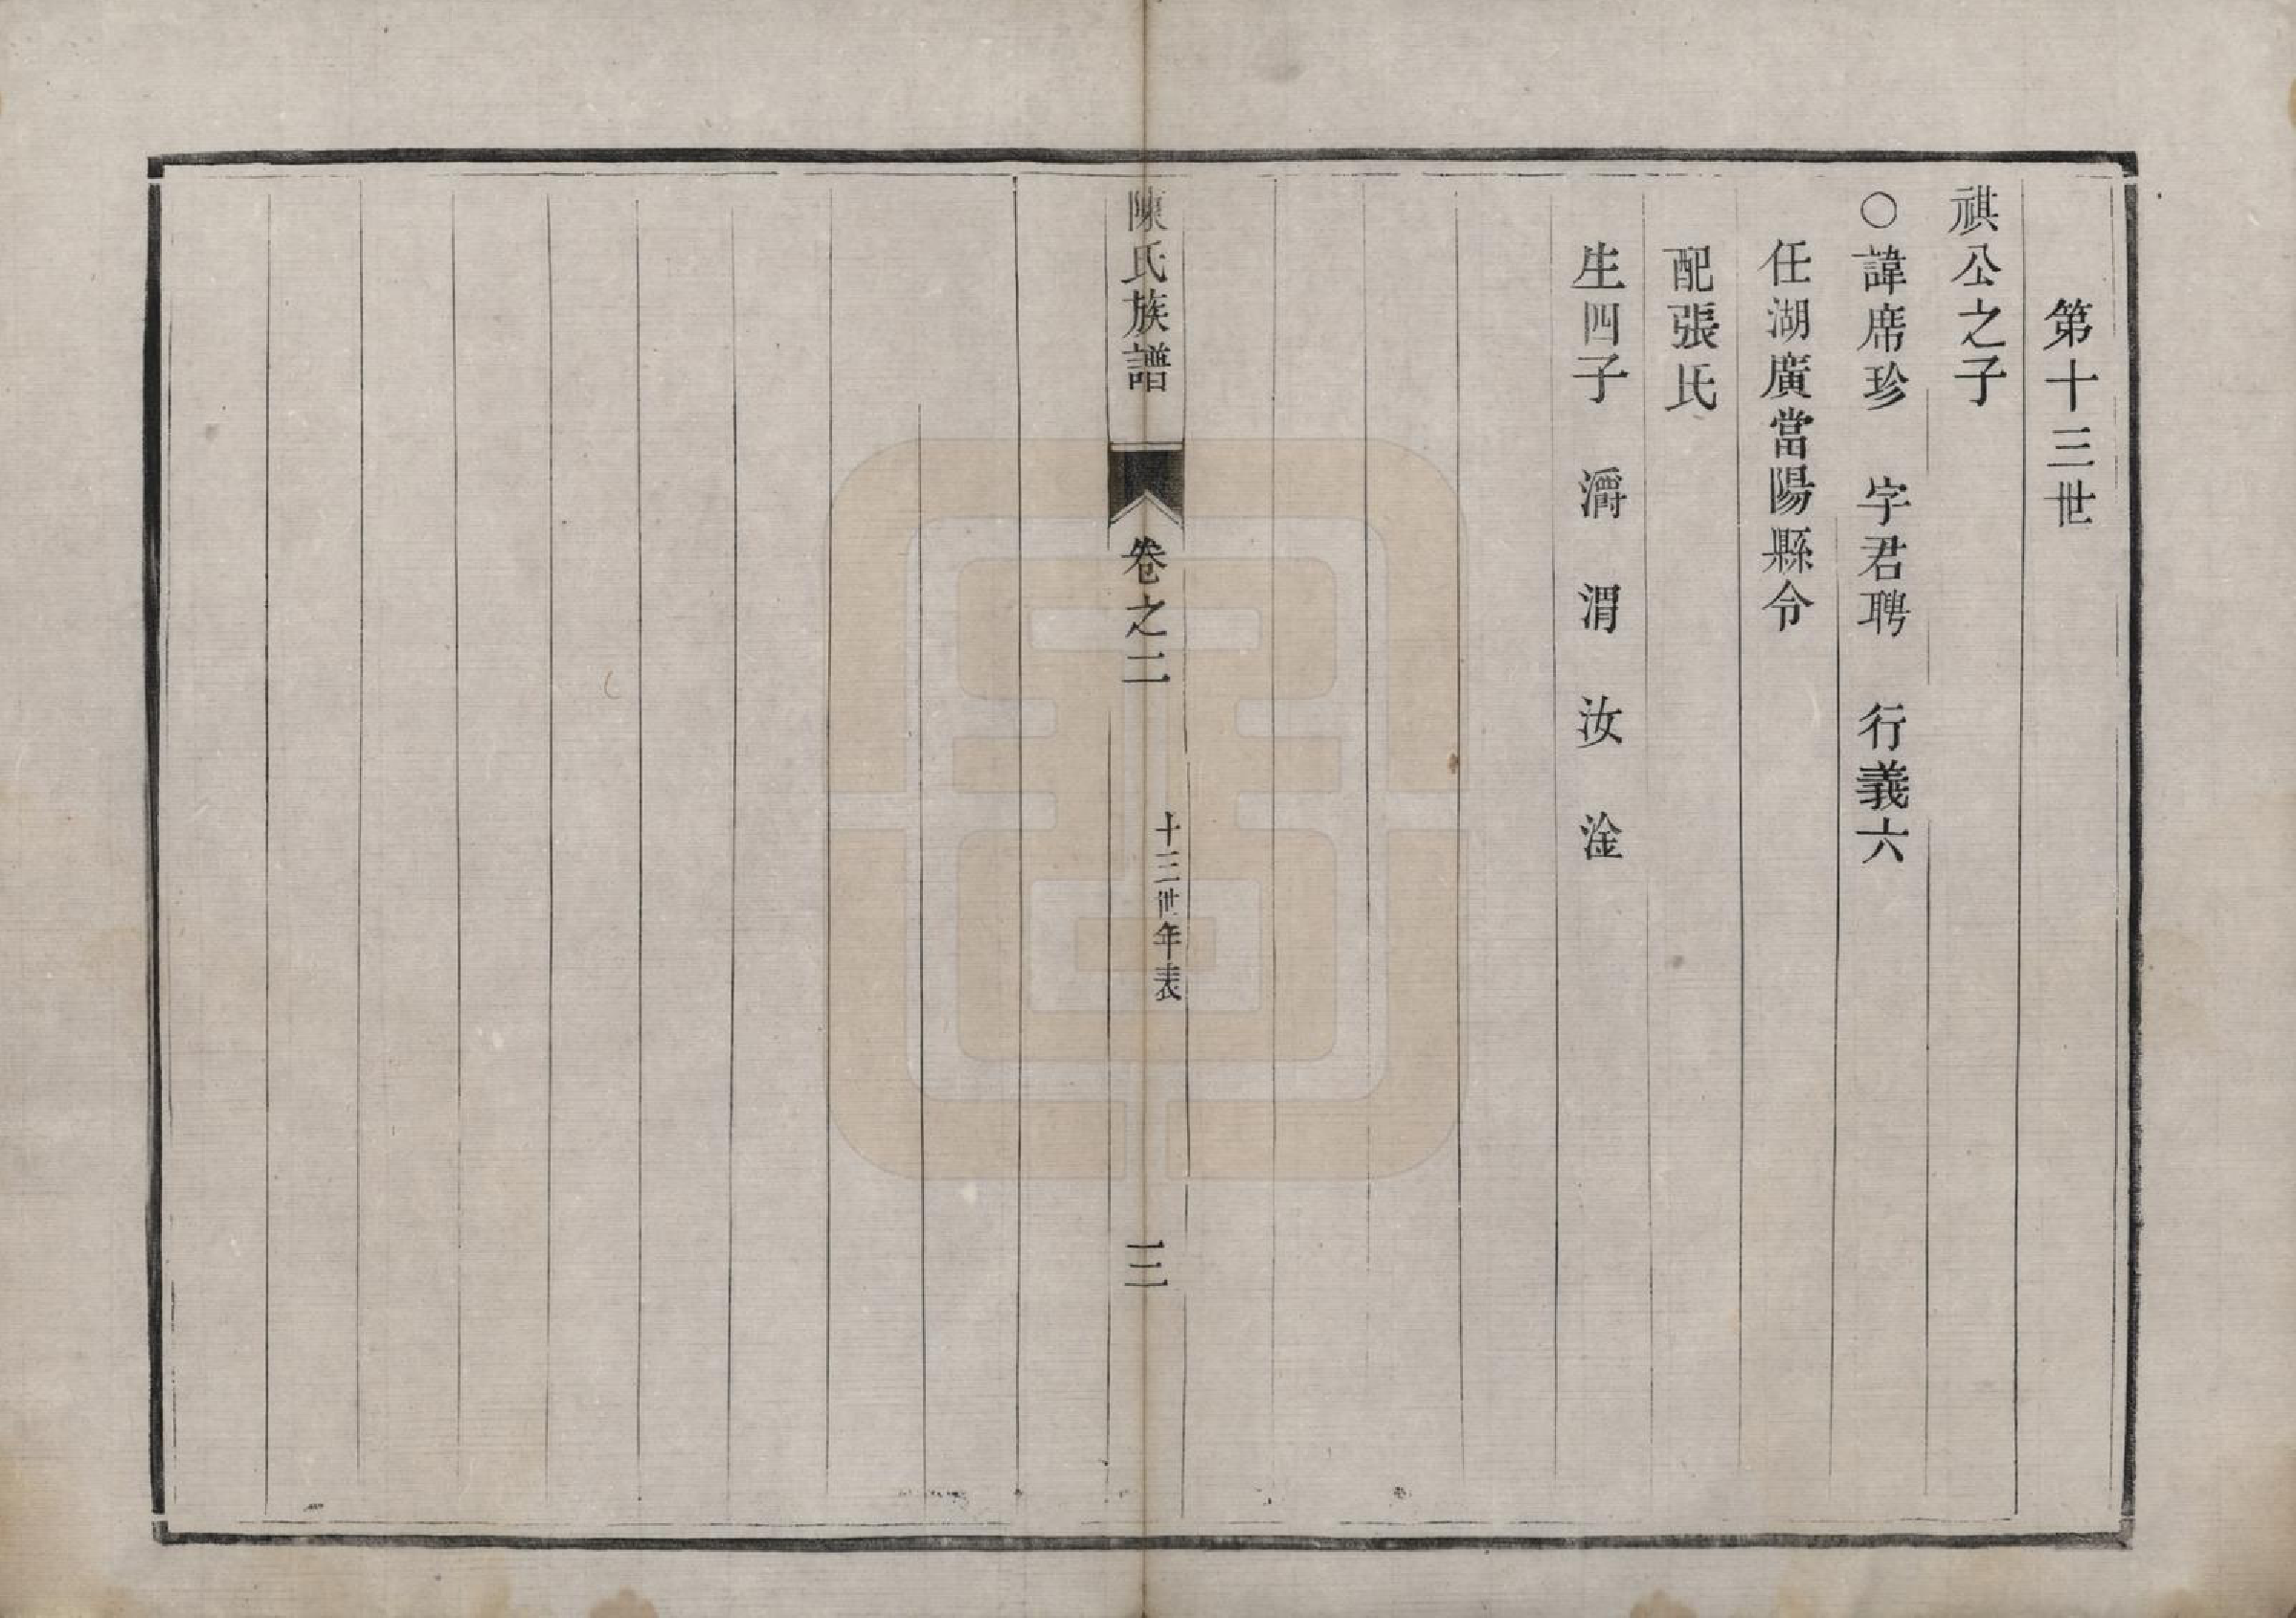 第十三世
祺公之子
○諱席珍　字君聘　行義六
任湖廣當陽縣令
配張氏
生四子　灂　渭　汝　淦
陳氏族譜　卷之二　十三世年表　三